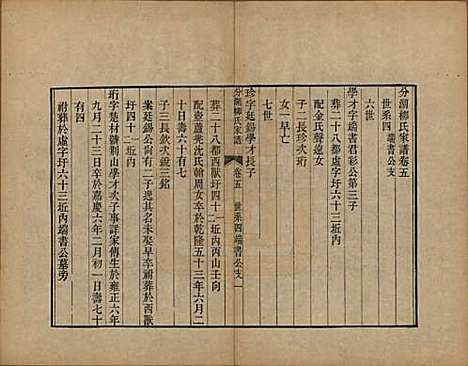 分湖柳氏家譜卷五
世系四端書公支
六世
學才字端書君彩公第三子
葬二十八都虛字圩六十三坵內
配金氏聲遠女
子二長珍次珩
女一早亡
七世
珍字廷錫學才長子
分湖柳氏家譜 卷五 世系四端書公支 一
葬二十八都西獸圩四十二坵內山壬向
配壺蘆兜沈氏翰周女卒於乾隆五十三年六月二
十日壽六十有七
子三長欽次銳三銘
案廷錫公尚有二子逸其名未娶早卒祔葬於西獸
圩四十一坵內
珩字楚材號荆山學才次子事詳家傳生於雍正六年
九月二十三日卒於嘉慶六年二月初一日壽七十
有四
祔葬於虛字圩六十三坵內端書公墓旁